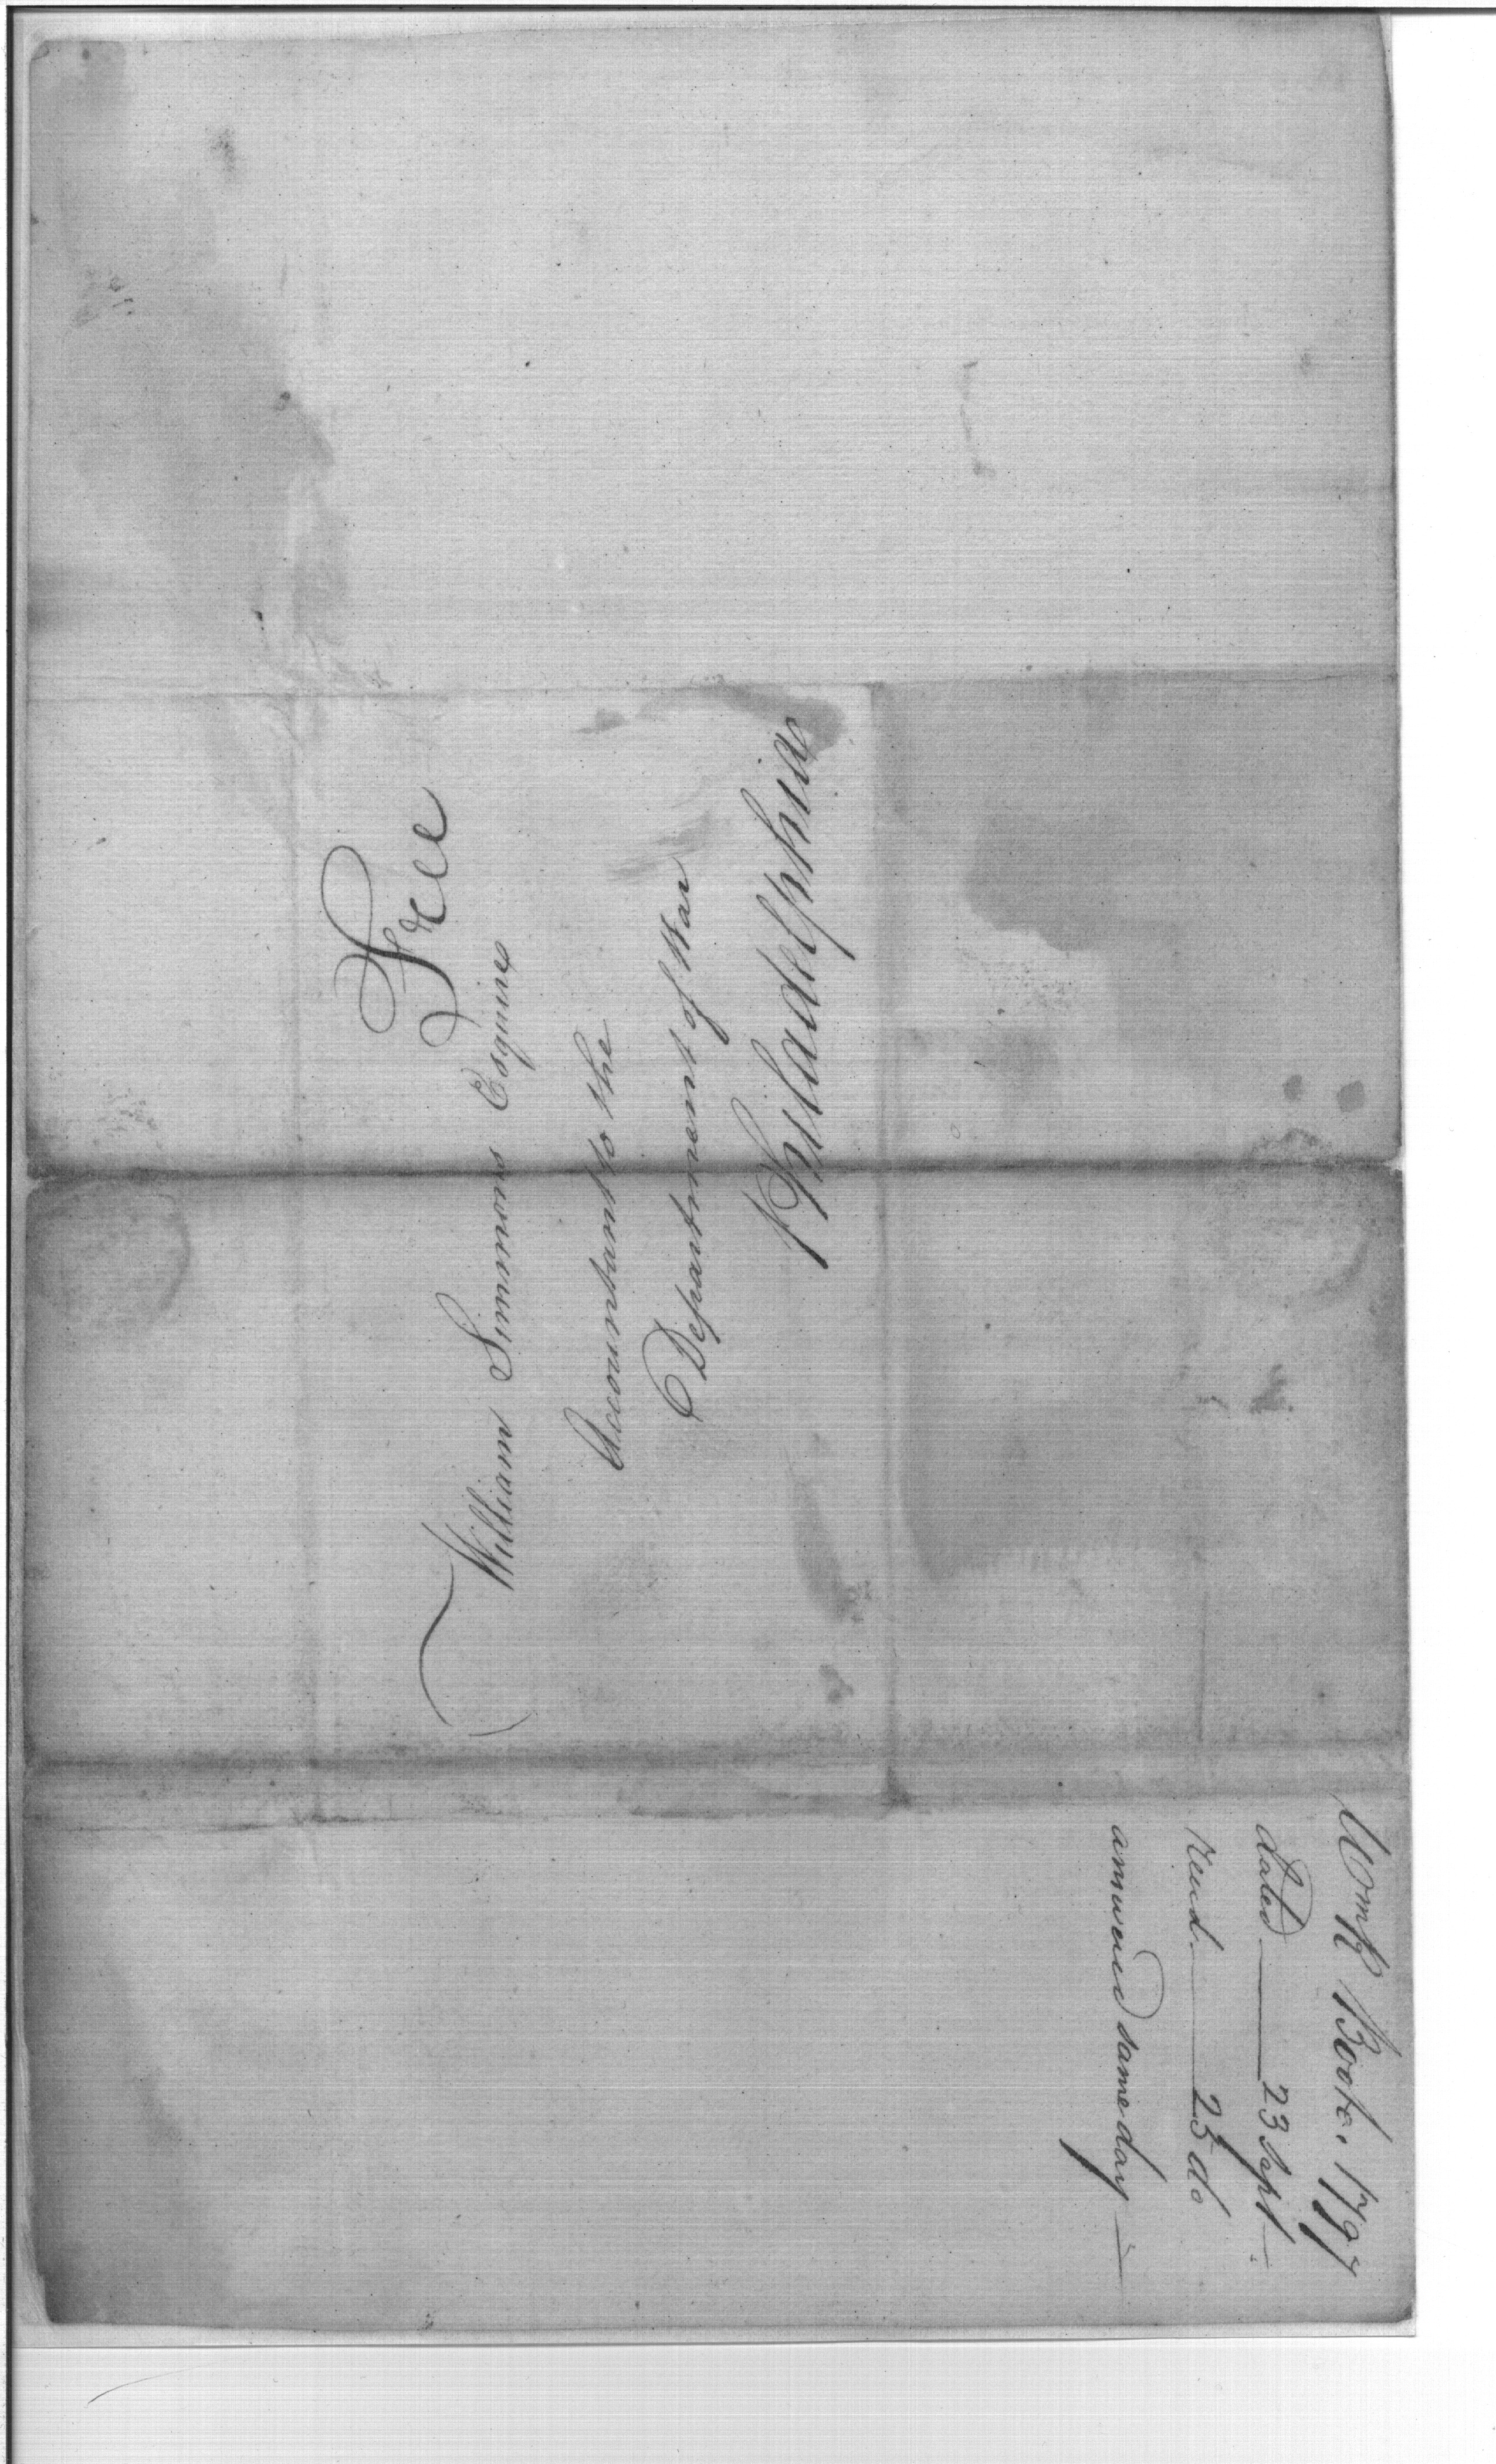 Free
William Simmons Esquire
Accountant to the
Department of War
Philadelphia
Books. 1797
dated 23 Sept
Recd. 25 do
answered same day